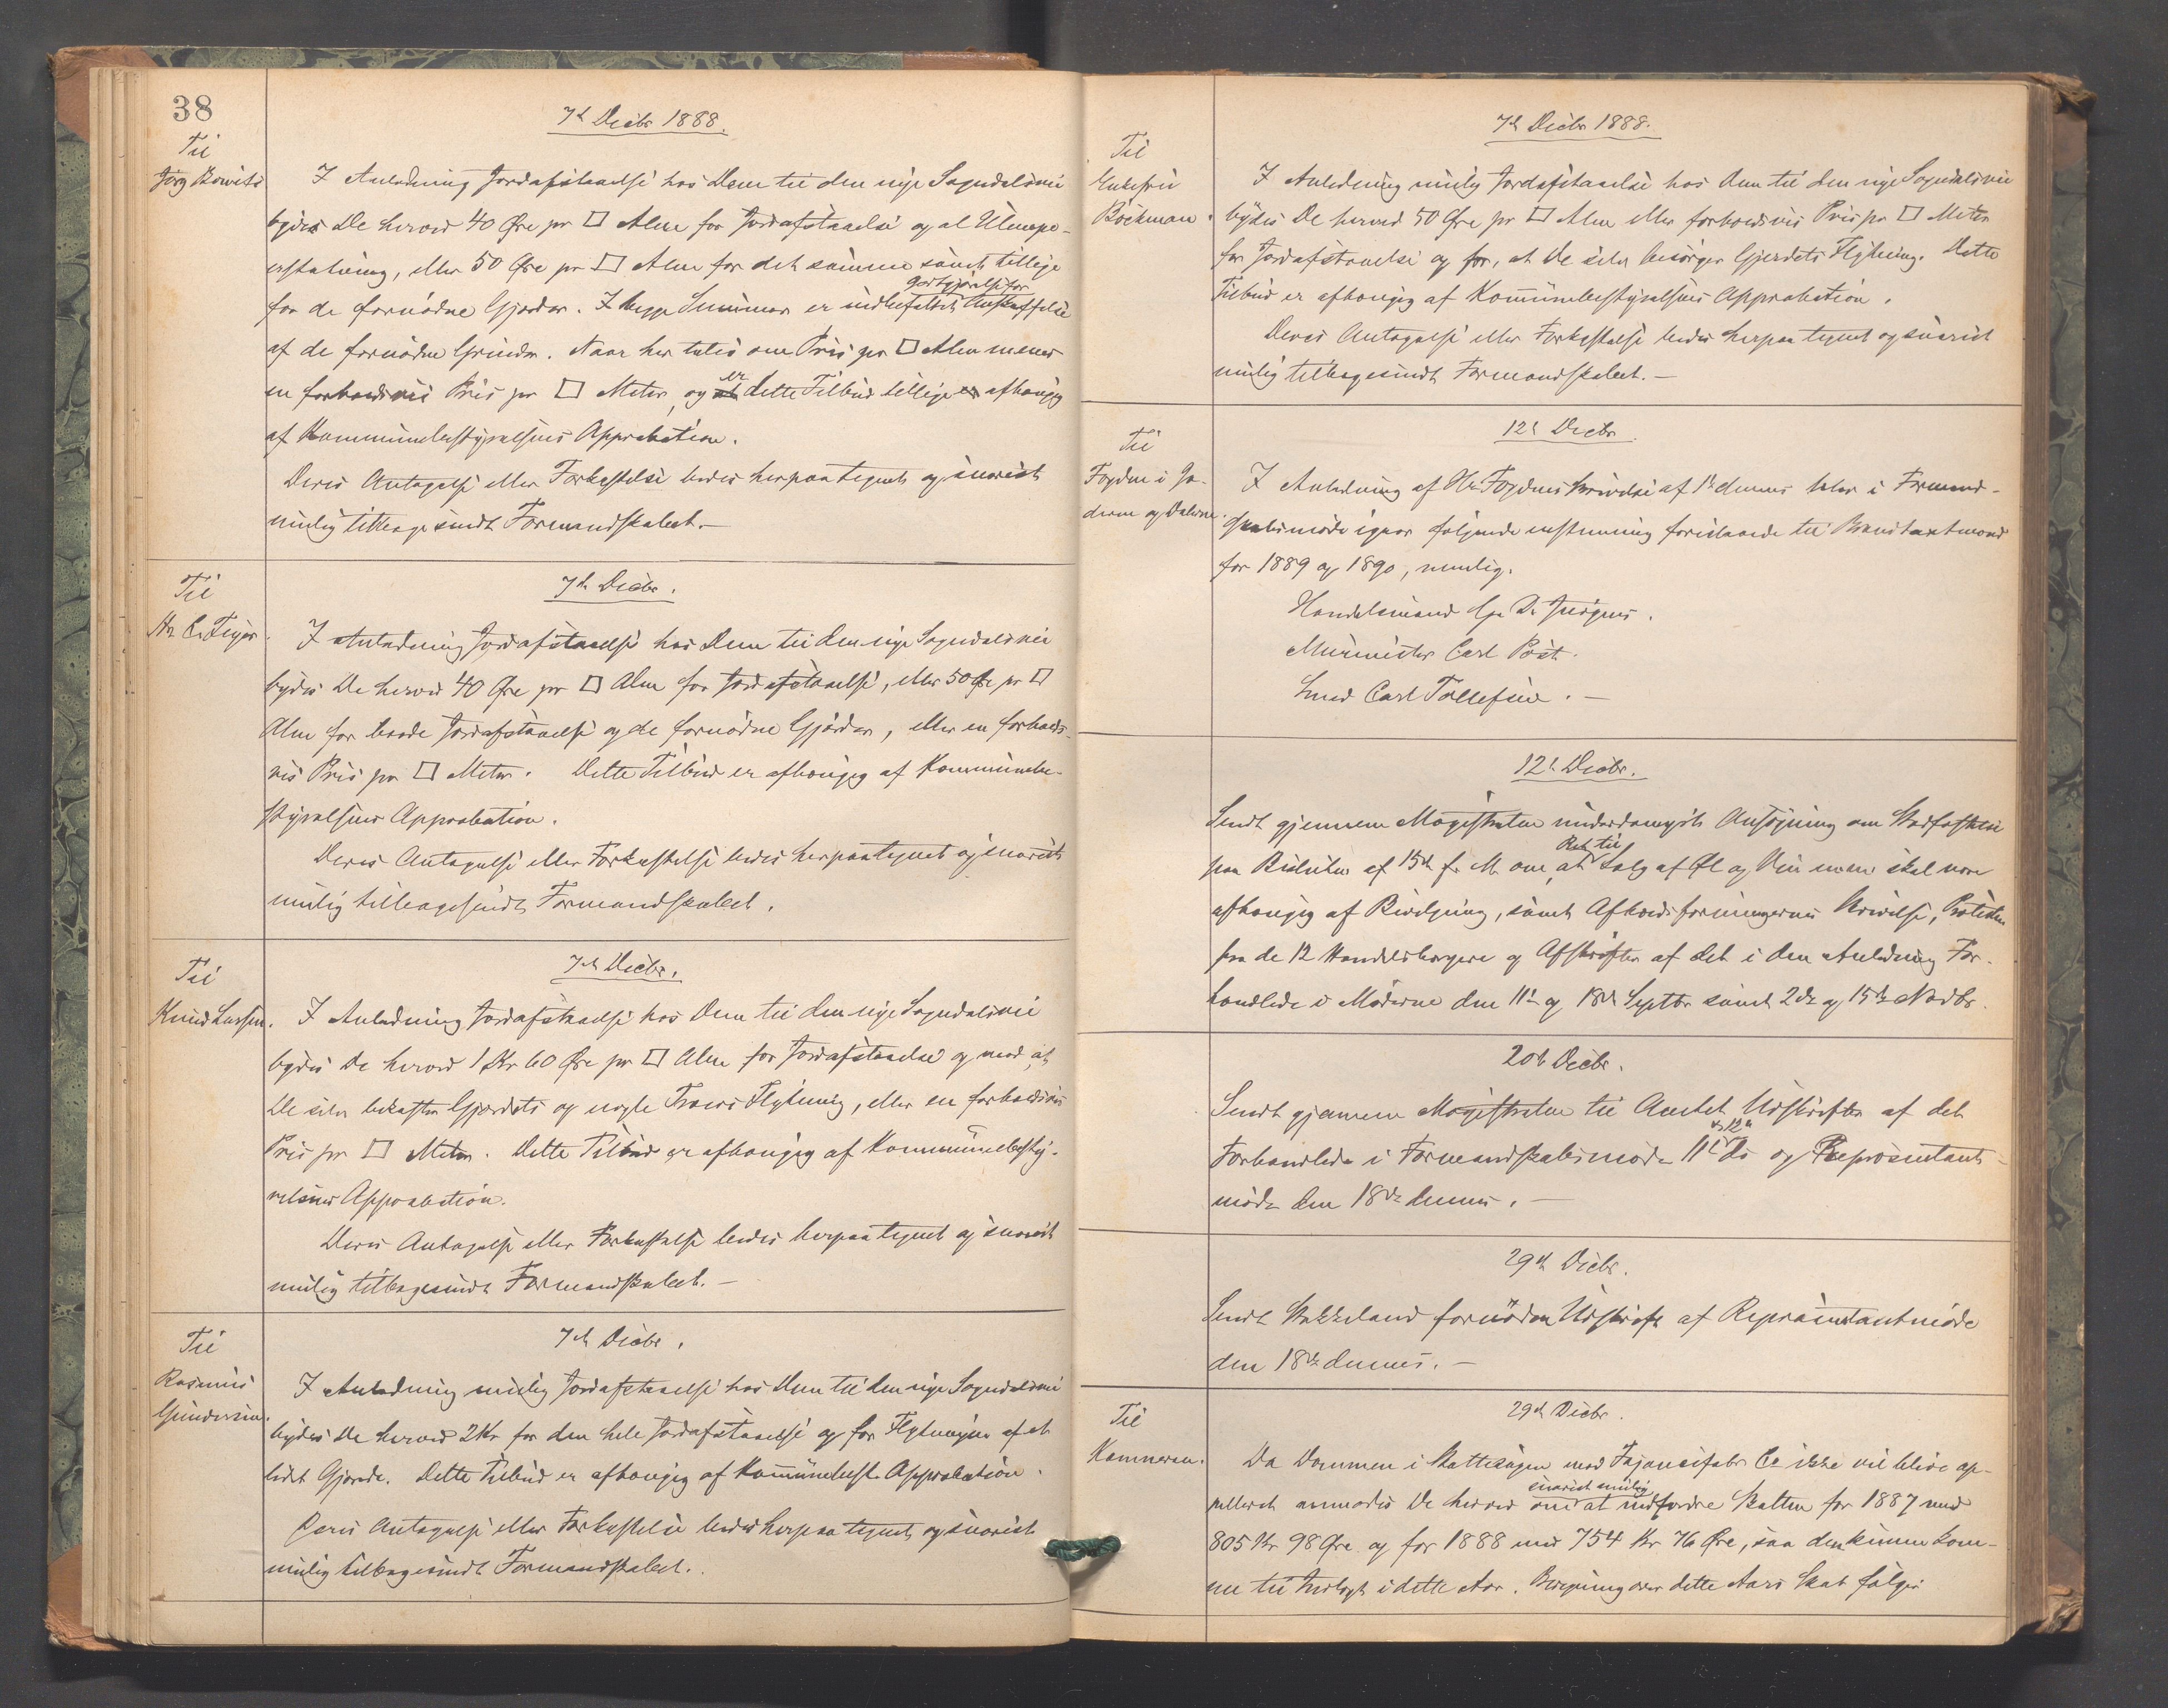 38
7de Decbr 1888.
Til
Jørg Bowitz
I Anledning Jordafstaaelse hos Dem til den nye Sogndalsvei
bydes De herved 40 Øre pr □ Alen for Jordafstaaelse og al Ulempe-
erstatning, eller 50 Øre pr □ Alen for det samme samt tillige
for de fornødne Gjærder. I begge Summer er indbefattet Godtgjørelse for Anskaffelse
af de fornødne Grinder. Naar her tales om Pris pr □ Alen menes
en forholdsvis Pris pr □ Meter, og er dette Tilbud tillige afhængig
af Kommunebestyrelsens Approbation.
Deres Antagelse eller Forkastelse bedes herpaategnet og snarest
mulig tilbagesendt Formandskabet.—
7de Decbr.
Til
Hr C. Feyer.
I Anledning Jordafstaaelse hos Dem til den nye Sogndalsvei
bydes De herved 40 Øre pr □ Alen for Jordafstaaelse, eller 50 Øre pr □
Alen for baade Jordafstaaelse og de fornødne Gjærder, eller en forholds-
vis Pris pr □ Meter. Dette Tilbud er afhængig af Kommunebe-
styrelsens Approbation.
Deres Antagelse eller Forkastelse bedes herpaategnet og snarest
mulig tilbagesendt Formandskabet.
7de Decbr.
Til
Knud Larsen.
I Anledning Jordafstaaelse hos Dem til den nye Sogndalsvei
bydes De herved 1 Kr 60 Øre pr □ Alen for Jordafstaaelse og mod, at
De selv bekoster Gjærdets og nogle Træers Flytning, eller en forholdsvis
Pris pr □ Meter. Dette Tilbud er afhængig af Kommunebesty-
relsens Approbation.
Deres Antagelse eller Forkastelse bedes herpaategnet og snarest
mulig tilbagesendt Formandskabet.—
7de Decbr.
Til
Rasmus
Gundersen.
I Anledning mulig Jordafstaaelse hos Dem til den nye Sogndalsvei
bydes De herved 2 Kr for den hele Jordafstaaelse og for Flytningen af et
lidet Gjærde. Dette Tilbud er afhængig af Kommunebest. Approbation.
Deres Antagelse eller Forkastelse bedes herpaategnet og snarest
mulig tilbagesendt Formandskabet.
7de Decbr 1888.
Til
Enkefru
Böckman.
I Anledning mulig Jordafstaaelse hos Dem til den nye Sogndalsvei
bydes De herved 50 Øre pr □ Alen eller forholdsvis Pris pr □ Meter
for Jordafstaaelse og for, at De selv besørger Gjerdets Flytning. Dette
Tilbud er afhængig af Kommunebestyrelsens Approbation.
Deres Antagelse eller Forkastelse bedes herpaategnet og snarest
mulig tilbagesendt Formandskabet.—
12te Decbr.
Til
Fogden i Ja-
deren og Dalerne.
I Anledning af Hr Fogdens Skrivelse af 1ste dennes blev i Formand-
skabsmøde igaar følgende enstemmig foreslaaede til Brandtaxtmænd
for 1889 og 1890, nemlig.
Handelsmand
Murmester Carl Post.
Smed Carl Tollefsen.—
12te Decbr.
Sendt gjennem Magistraten underdanigst Ansøgning om Stadfæstelse
paa Beslutn. af 15de f. M. om, at Ret til Salg af Øl og Vin skal være
afhængig af Bevilgning, samt Afholdsforeningernes Skrivelse, Protesten
fra de 12 Handelsborgere og Afskrifter af det i den Anledning For-
handlede i Møderne den 11te og 18de Septbr samt 2de og 15de Novbr.
20de Decbr.
Sendt gjennem Magistraten til Amtet Udskrifter af det
Forhandlede i Formandskabsmøde 11te og 12te ds og Repræsentant-
møde den 18de dennes.—
29de Decbr.
Sendt Stakkeland fornøden Udskrift af Repræsentantmøde
den 18de dennes.—
29de Decbr.
Til
Kæmneren.
Da Dommen i Skattesagen mod Fajansefabr. Co ikke vil blive ap-
pelleret anmodes De herved om snarest mulig at indfordre Skatten for 1887 med
805 Kr 98 Øre og for 1888 med 754 Kr 76 Øre, saa den kunne kom-
me til Indtægt i dette Aar. Beregning over dette Aars Skat følger